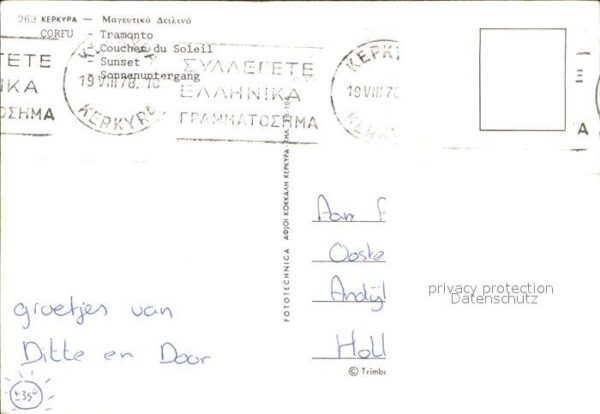 263 ΚΕΡΚΥΡΑ — Μαγευτικό Δειλινό
CORFU - Tramonto
- Coucher du Soleil
- Sunset
- Sonnenuntergang
ΚΕΡΚΥΡΑ
19 VIII 78. 10
KERKYRA
ΣΥΛΛΕΓΕΤΕ
ΕΛΛΗΝΙΚΑ
ΓΡΑΜΜΑΤΟΣΗΜΑ
ΕΤΕ
ΙΚΑ
ΟΣΗΜΑ
ΚΕΡΚ
19 VIII 78
Ξ
Α
FOTOTECHNICA ΑΦΙΟΙ ΚΟΚΚΑΛΗ ΚΕΡΚΥΡΑ
Aan F
Ooste
Andijk
Holl
© Trimbo
privacy protection
Datenschutz
groetjes van
Ditte en Door
±35°